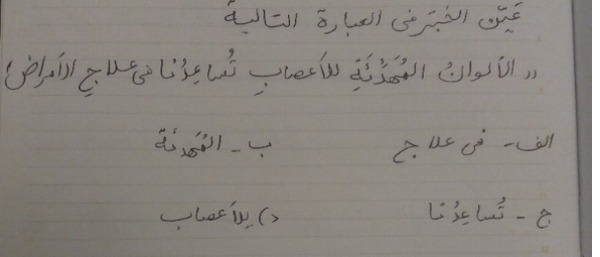 عَيِّن الخَبَر فی العبارة التالیة
«الأَلوانُ المُهَدِّئَةِ لِلأَعصابِ تُساعِدُنا فی علاجِ الأَمراض»
الف - فی علاج ب - المُهَدِّئَة
ج - تُساعِدُنا د) لِلأَعصاب